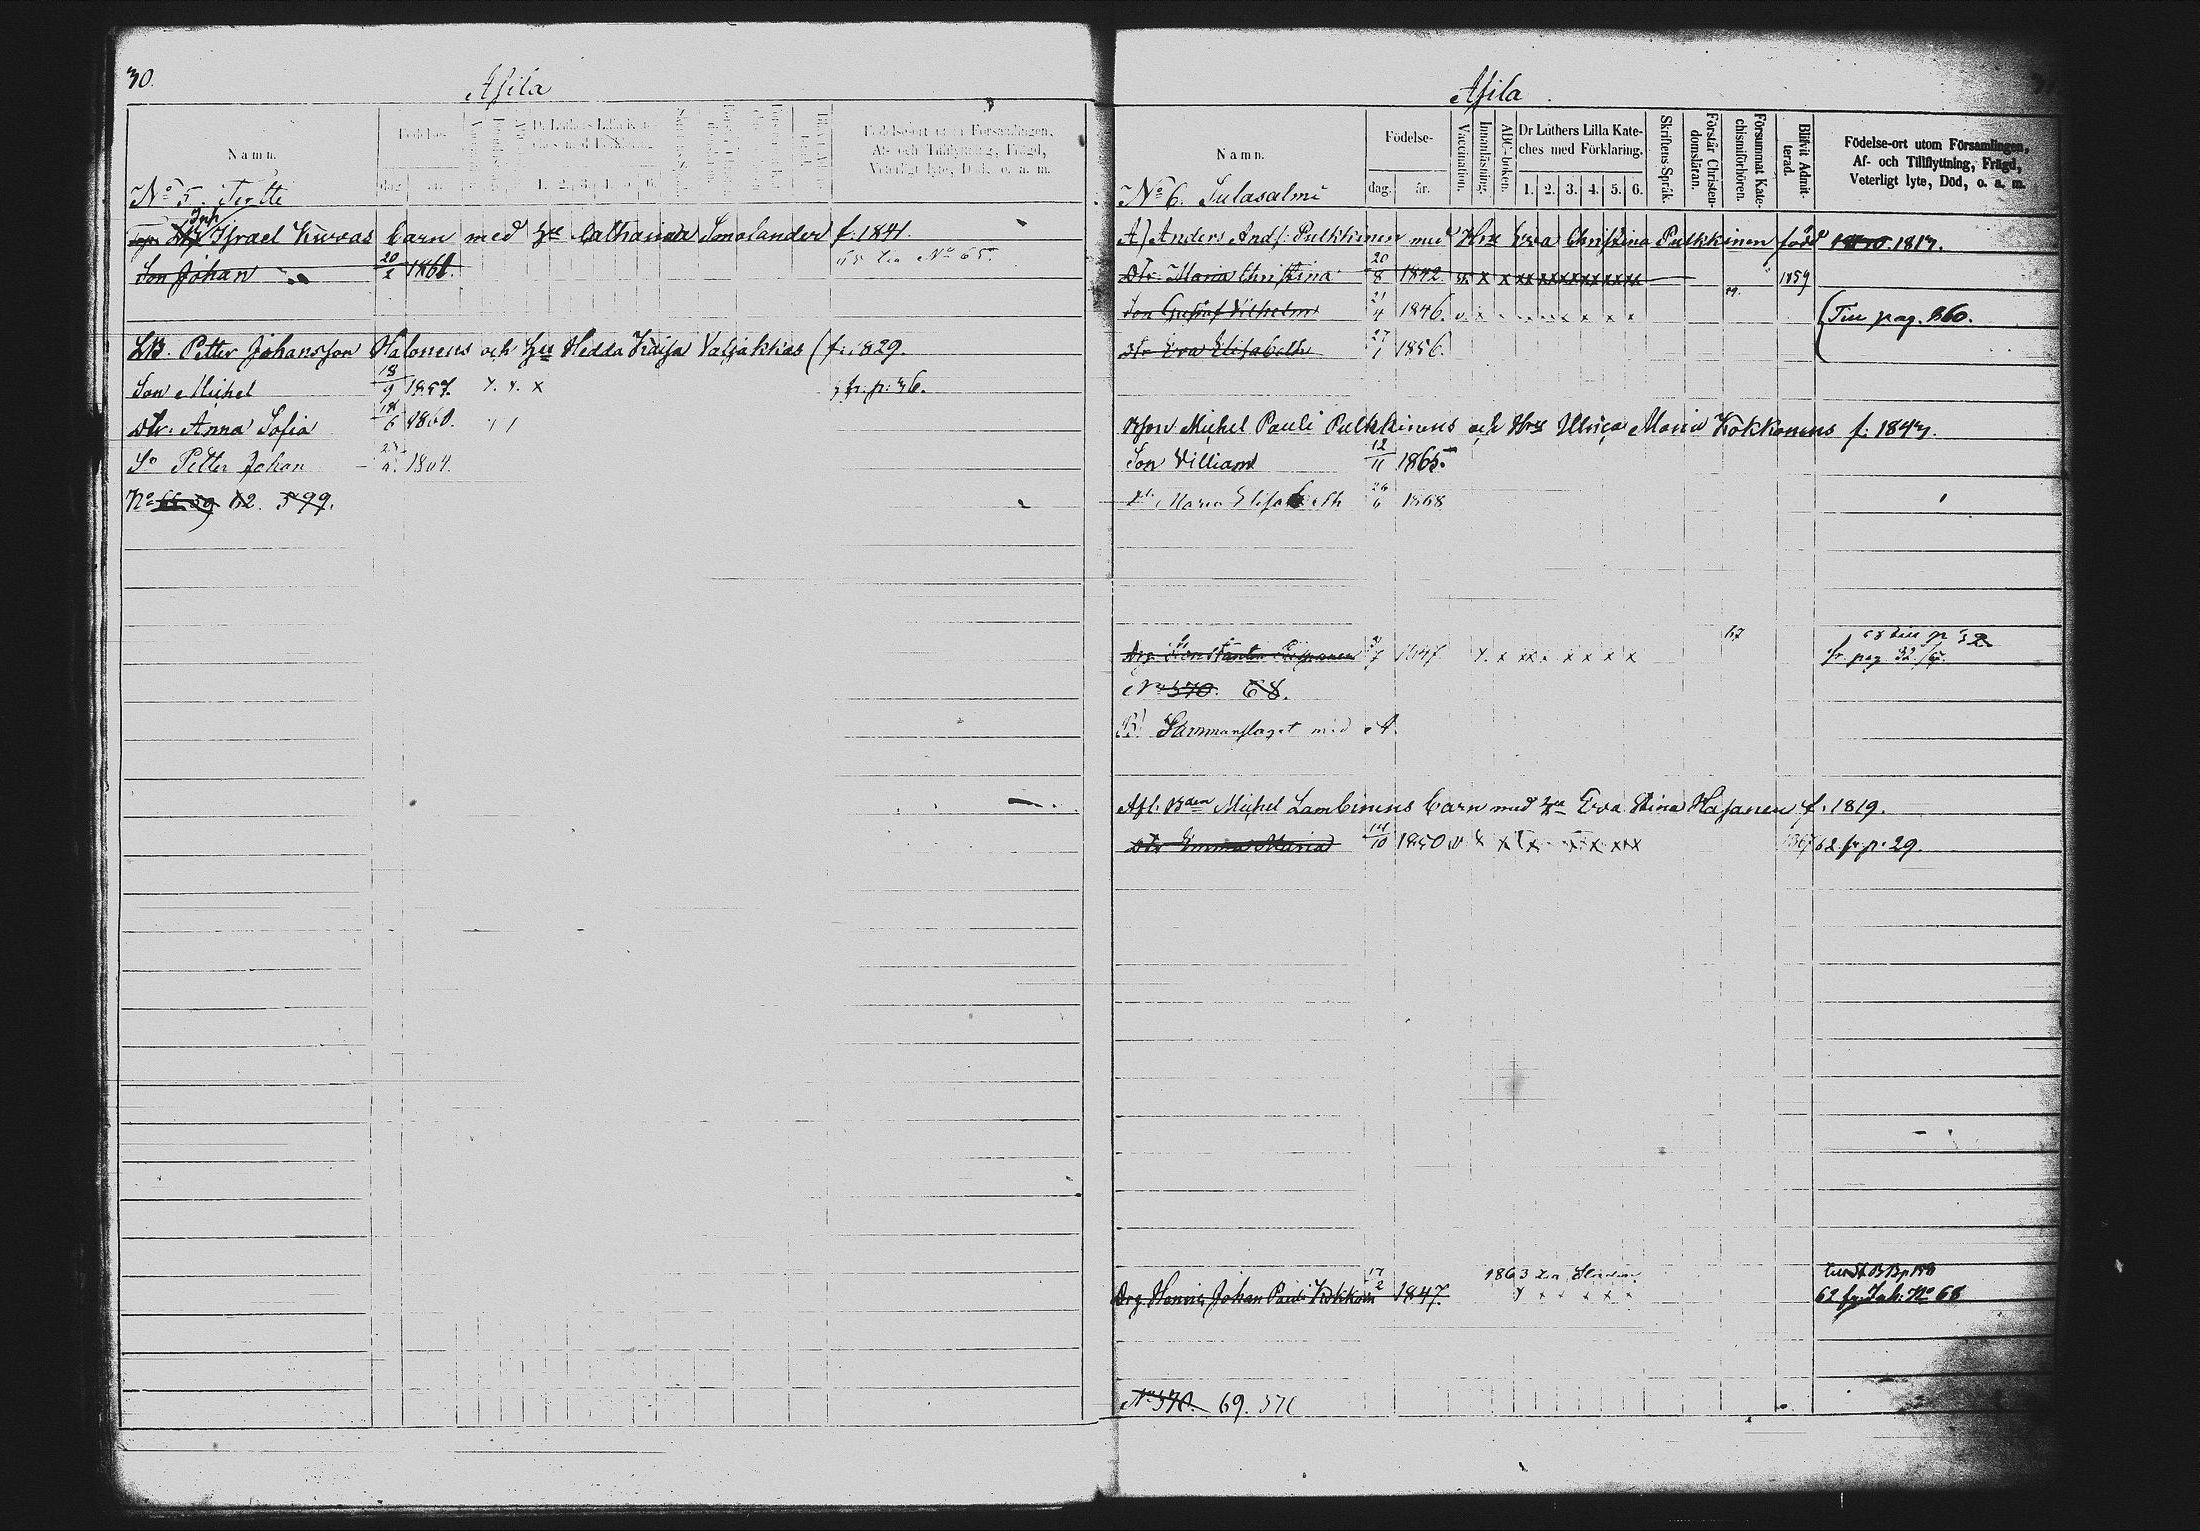 30.
Afila
Namn.
Födelse-
dag. år.
Dr Luthers Lilla Kate-
ches med Förklaring.
1. 2. 3. 4. 5. 6.
Födelse-ort utom Församlingen,
Af- och Tillflyttning, Frägd,
Veterligt lyte, Död, o. a. m.
No 5. Tertte
Inh
Israel Kurvas barn med Hu Catharina Smolander f. 1841.
Son Johan 20/2 1861. No 65.
Petter Johansson Halonens och Hu Hedda Kaisa Valjakkas f. 1829.
Son Michel 18/9 1857. fr. p. 36.
Dtr. Anna Sofia 6 1860.
Sn Petter Johan
No 62. 599.
Afila
Namn.
Födelse-
dag. år.
Vaccination.
Innanläsning.
ABC-boken.
Dr Luthers Lilla Kate-
ches med Förklaring.
1. 2. 3. 4. 5. 6.
Skriftens Språk.
Förstår Christen-
domsläran.
Försummat Kate-
chismiförhören.
Blifvit Admit-
terad.
Födelse-ort utom Församlingen,
Af- och Tillflyttning, Frägd,
Veterligt lyte, Död, o. a. m.
No 6. Sulasalmi
A) Anders And. Pulkkinen med Hru Eva Christina Pulkkinen född 1817.
Dtr Maria Christina 20/8 1842. 1859
Son Gustaf Vilhelm 21/4 1846. Till pag. 360.
Dtr Eva Elisabeth 27/1 1856.
Michel Pauli Pulkkinens och Hru Ulrica Maria Kokkonens f. 1847.
Son William 12/11 1865.
Dtr Maria Elisabeth 26/6 1868
Drg. Konstantin 1847 67 fr. pag. 32
No 570. 68.
B) Sammanslaget med A.
Afl. Bden Michel Lambinens barn med Hu Eva Stina Hasanen f. 1819.
Dtr Emma Maria 14/10 1850 62 fr. p. 29.
1863
Drg Johan Pauli Kokkon 17/2 1847. 62 fr. No 68
No 570. 69. 571